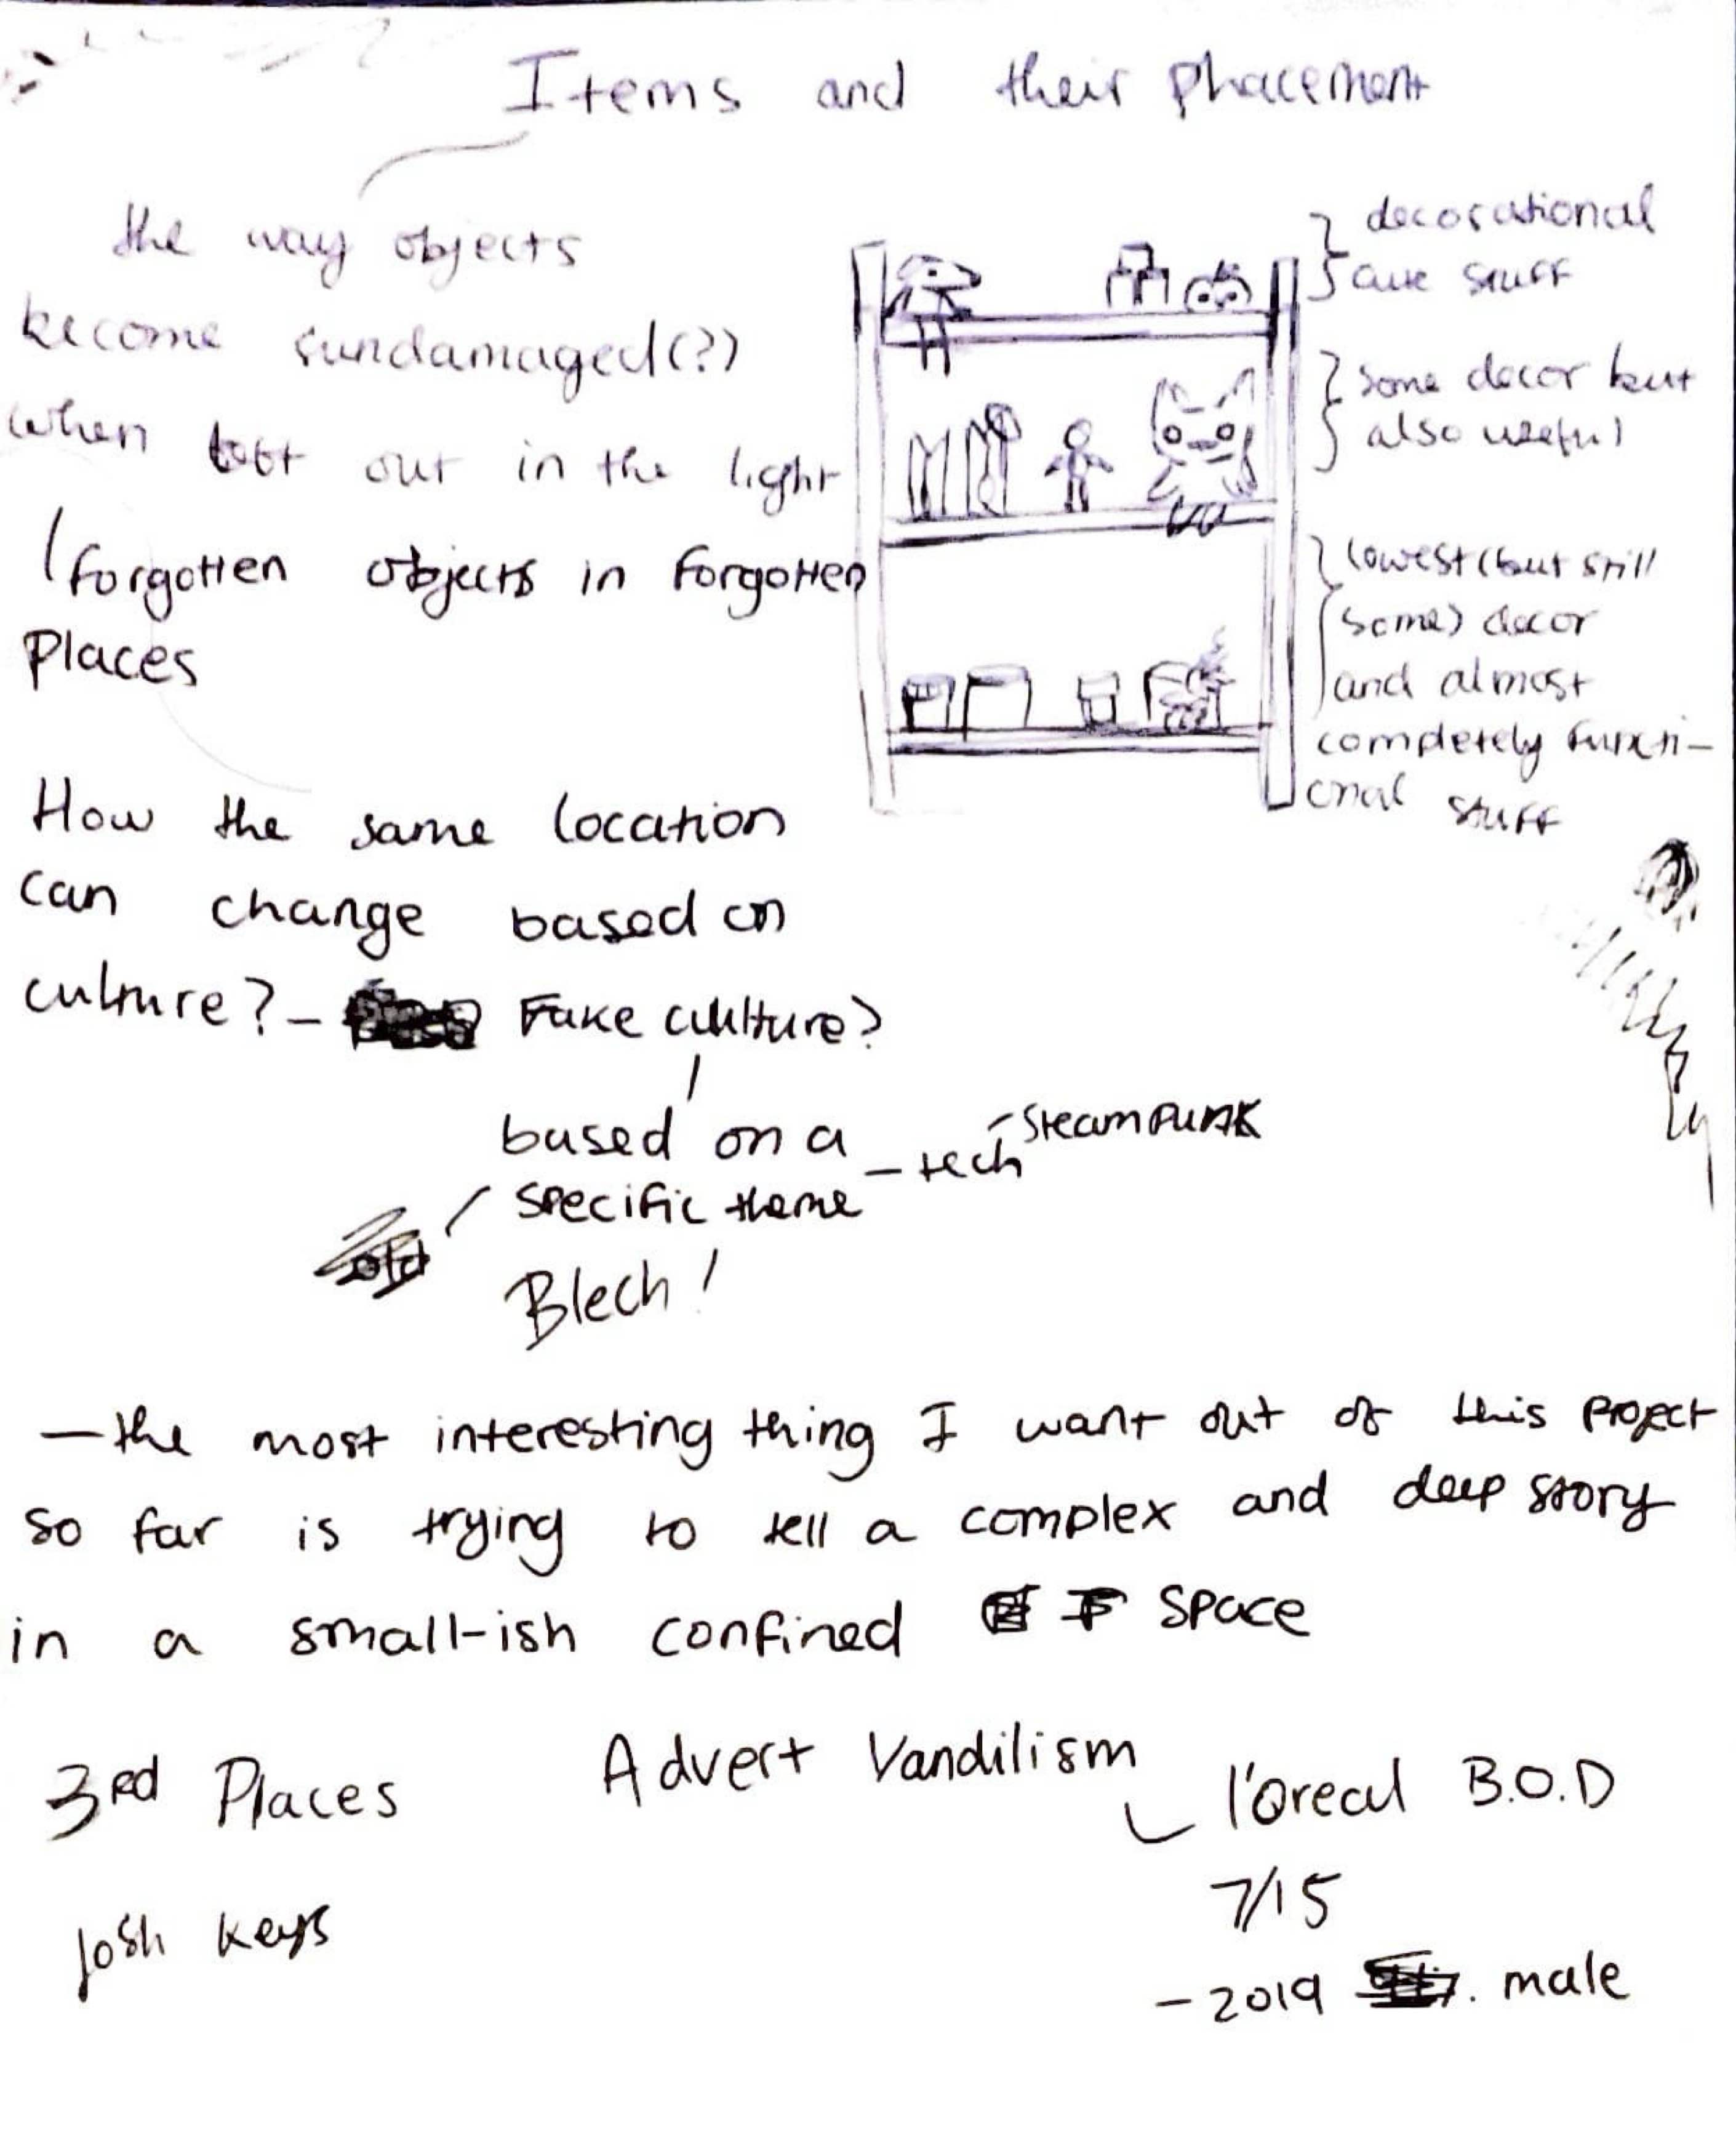 Items and their phacement
the way objects
become sundamaged(?)
when left out in the light
forgotten objects in forgotten
places
decorational
cute stuff
some decor but
also useful
lowest (but still
some) decor
and almost
completely functi-
onal stuff
How the same location
can change based on
culture? - Fake culture?
based on a
specific theme - tech - Steampunk
old
Blech!
- the most interesting thing I want out of this project
so far is trying to tell a complex and deep story
in a small-ish confined space
3rd Places
Advert Vandilism
l'Oreal B.O.D
7/15
- 2019 male
Josh Keys